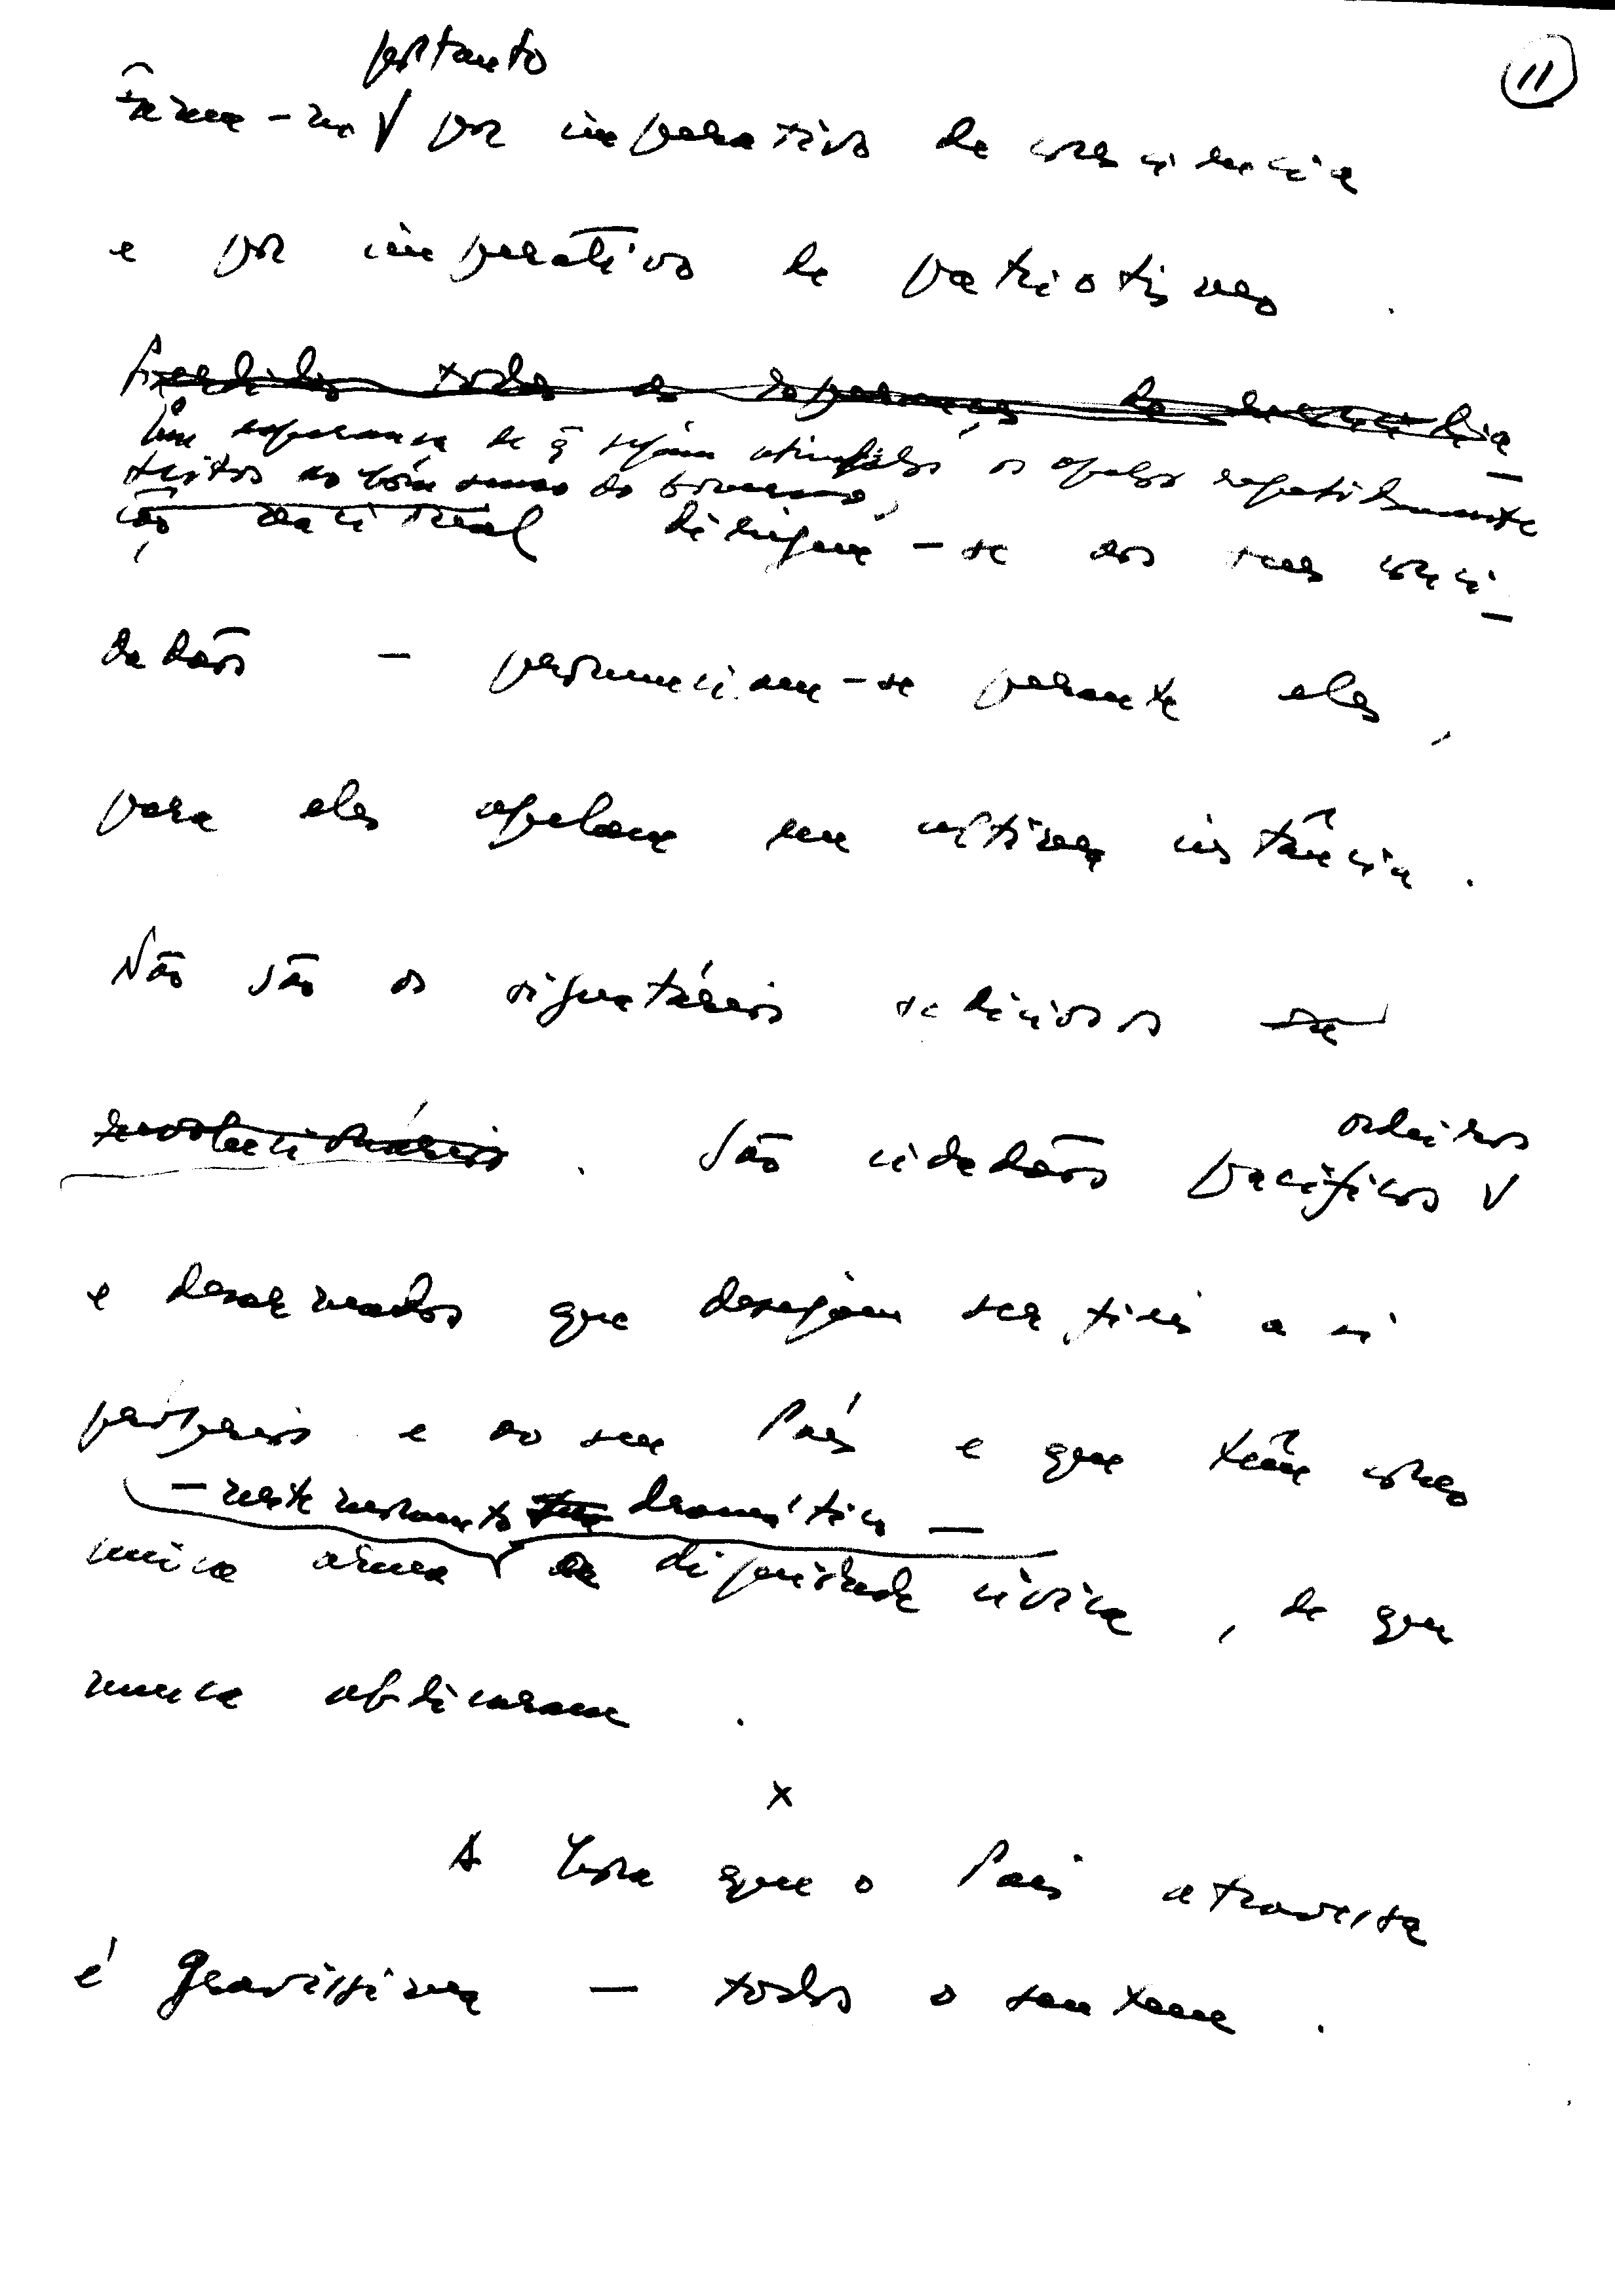 11
portanto
por imperativo de consciência
e por imperativo de patriotismo .
Perdidas todas as esperanças de
Sem esperança de q̃ sejam os apelos repetidamente
feitos ao bom senso do Governo,
ção nacional dirigem-se aos seus conci-
dadãos – pronunciam-se perante eles,
para eles apelam em ultima instância .
Não são os signatários sediciosos
revolucionários . São cidadãos pacíficos √
ordeiros
e desarmados que desejam ser fieis a si
próprios e ao seu País e que têm como
– neste momento dramático –
unica arma a dignidade cívica , de que
nunca abdicaram .
x
A hora que o Pais atravessa
é gravíssima – todos o sentem .